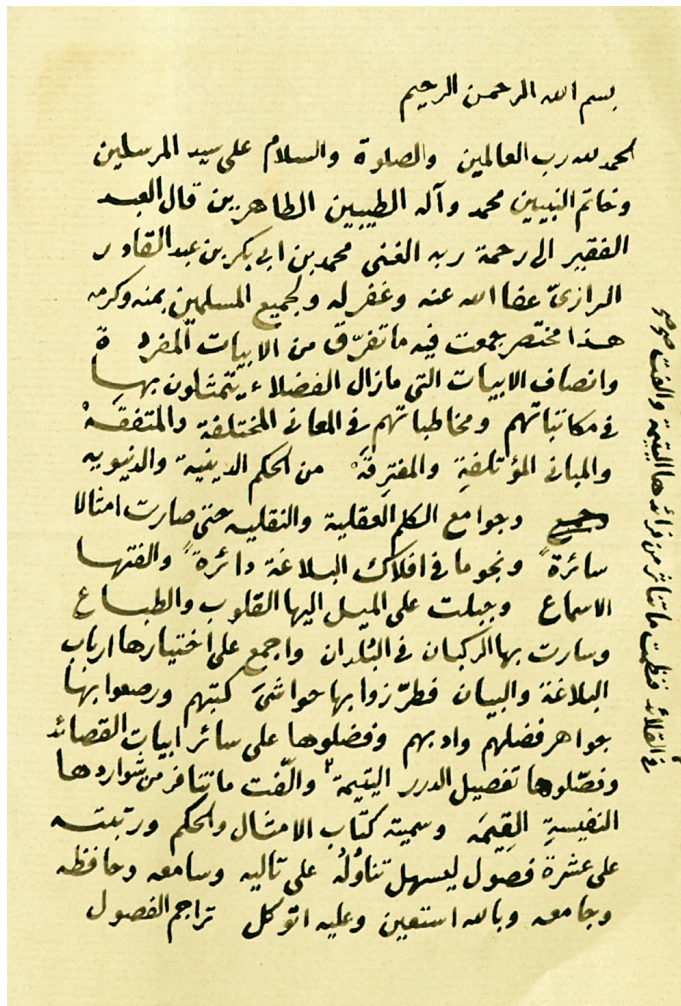 بسم الله الرحمن الرحيم
الحمد لله رب العالمين والصلوة والسلام على سيد المرسلين
وخاتم النبيين محمد وآله الطيبين الطاهرين قال العبد
الفقير الى رحمة ربه الغنى محمد بن ابى بكر بن عبد القادر
الرازىّ عفا الله عنه وغفر له ولجميع المسلمين بمنه وكرمه
هذا مختصر جمعت فيه ما تفرّق من الابيات المفردة
وانصاف الابيات التى مازال الفضلاء يتمثلون بها
فى مكاتباتهم ومخاطباتهم فى المعانى المختلفة والمتفقة
والمبانى المؤتلفةِ والمفترقةِ من الحكم الدينية والدنيويه
وجوامع الكلم العقلية والنقليه حتى صارت امثالا
سائرةً ونجوما فى افلاك البلاغة دائرةً والفتها
الاسماع وجبلت على الميل اليها القلوب والطباع
وسارت بها الركبان فى البُلدان واجمع على اختيارها ارباب
البلاغة والبيان فطرّزوا بها حواشىَ كتبهم ورصعوا بها
جواهر فضلهم وادبهم وفضلوها على سائر ابيات القصائد
وفصّلوها تفصيل الدرر اليتيمة والّفت ما تنافر من شواردها
النفيسةِ القِيمَه وسميته كتاب الامثال والحكم ورتبته
على عشرة فصول ليسهل تناوُلُه على تاليه وسامعه وحافظه
وجامعه وبالله استعين وعليه اتوكل تراجم الفصول
فى القلائد فنظمت ما تناثر من فرائدها اليتيمة والفت